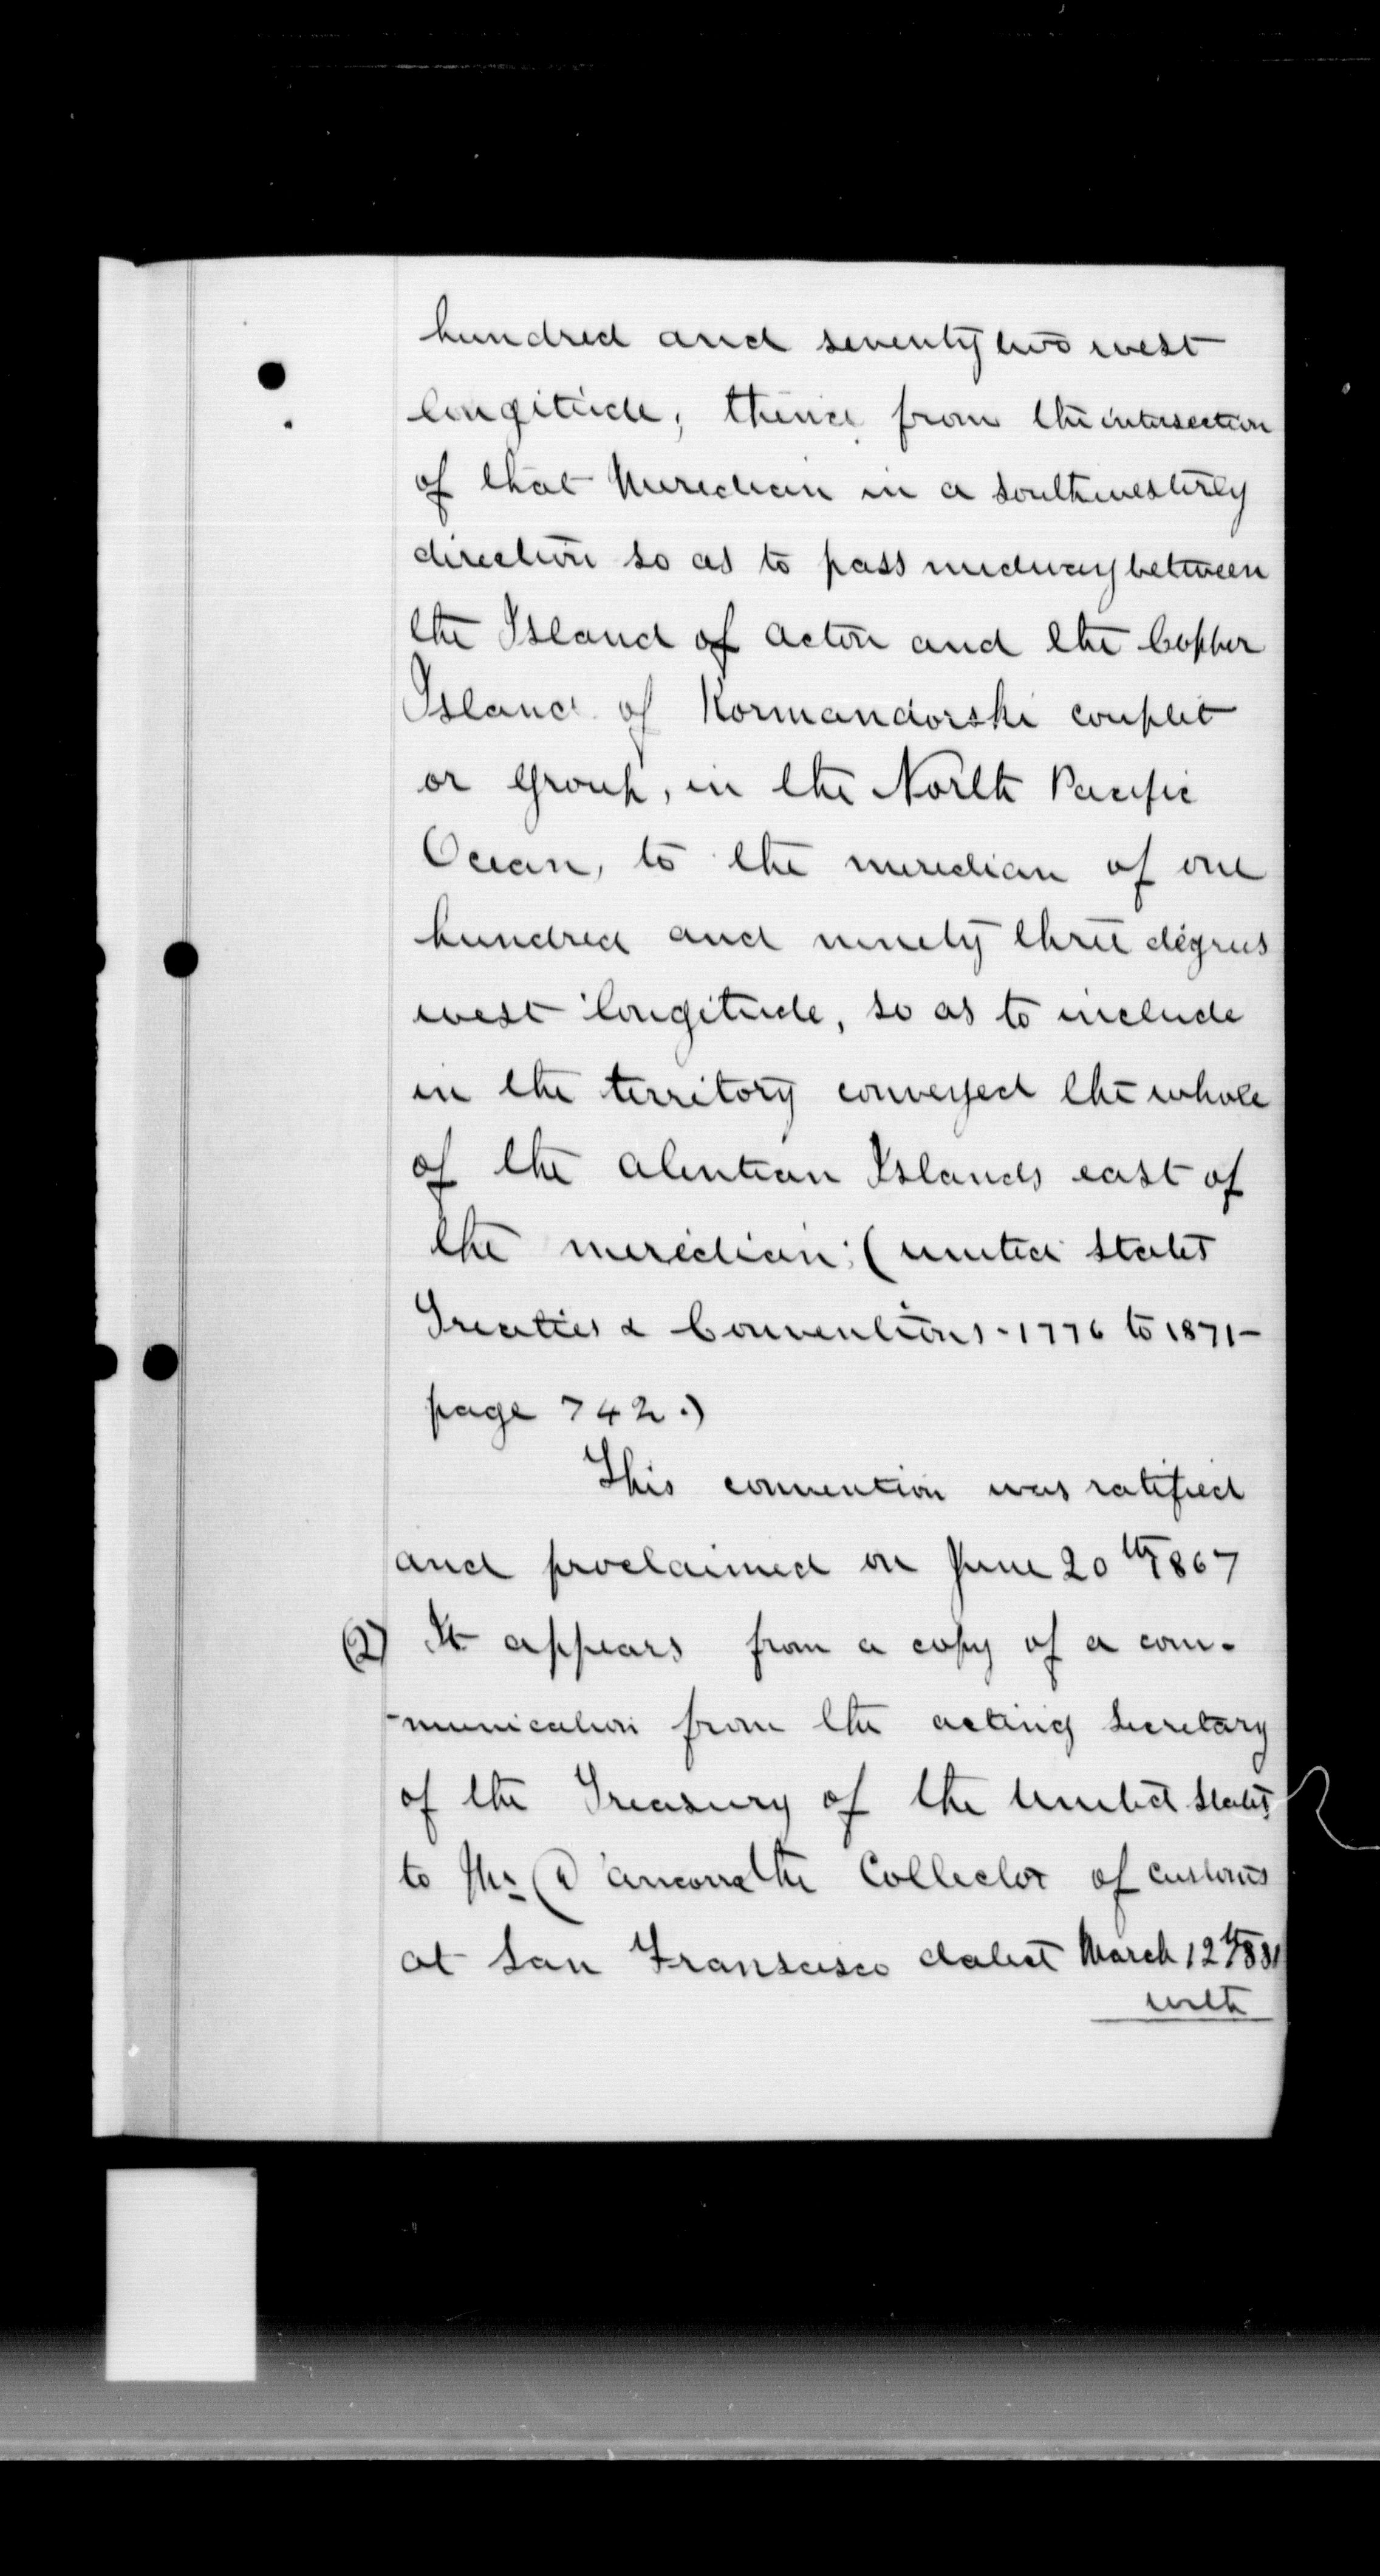 hundred and seventy two west
longitude; thence from the intersection
of that Meridian in a southwesterly
direction so as to pass midway between
the Island of acton and the Copper
Island of Kormandorski couplet
or group, in the North Pacific
Ocean, to the meridian of one
hundred and ninety three degrees
west longitude, so as to include
in the territory conveyed the whole
of the aleutian Islands east of
the meridian: (united states
Treaties & Conventions - 1776 to 1871 -
page 742.)
This convention was ratified
and proclaimed on June 20th 1867
(2) It appears from a copy of a com-
-munication from the acting Secretary
of the Treasury of the United States
to Mr D'ancona the Collector of customs
at San Fransisco dated March 12th 1881
with